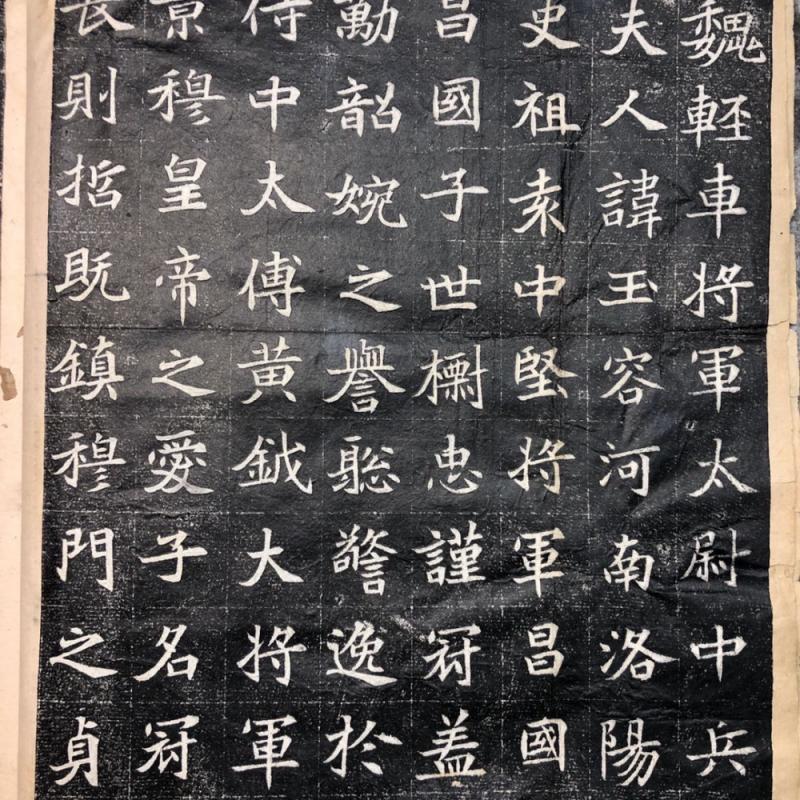 魏輕車将軍太尉中兵
夫人諱玉容河南洛陽
史祖袁中堅将軍昌國
昌國子世檦忠謹冠盖
勳韶婉之譽聡警逸於
侍中太傅黃鉞大将軍
景穆皇帝之愛子名冠
長則哲既鎮穆門之貞